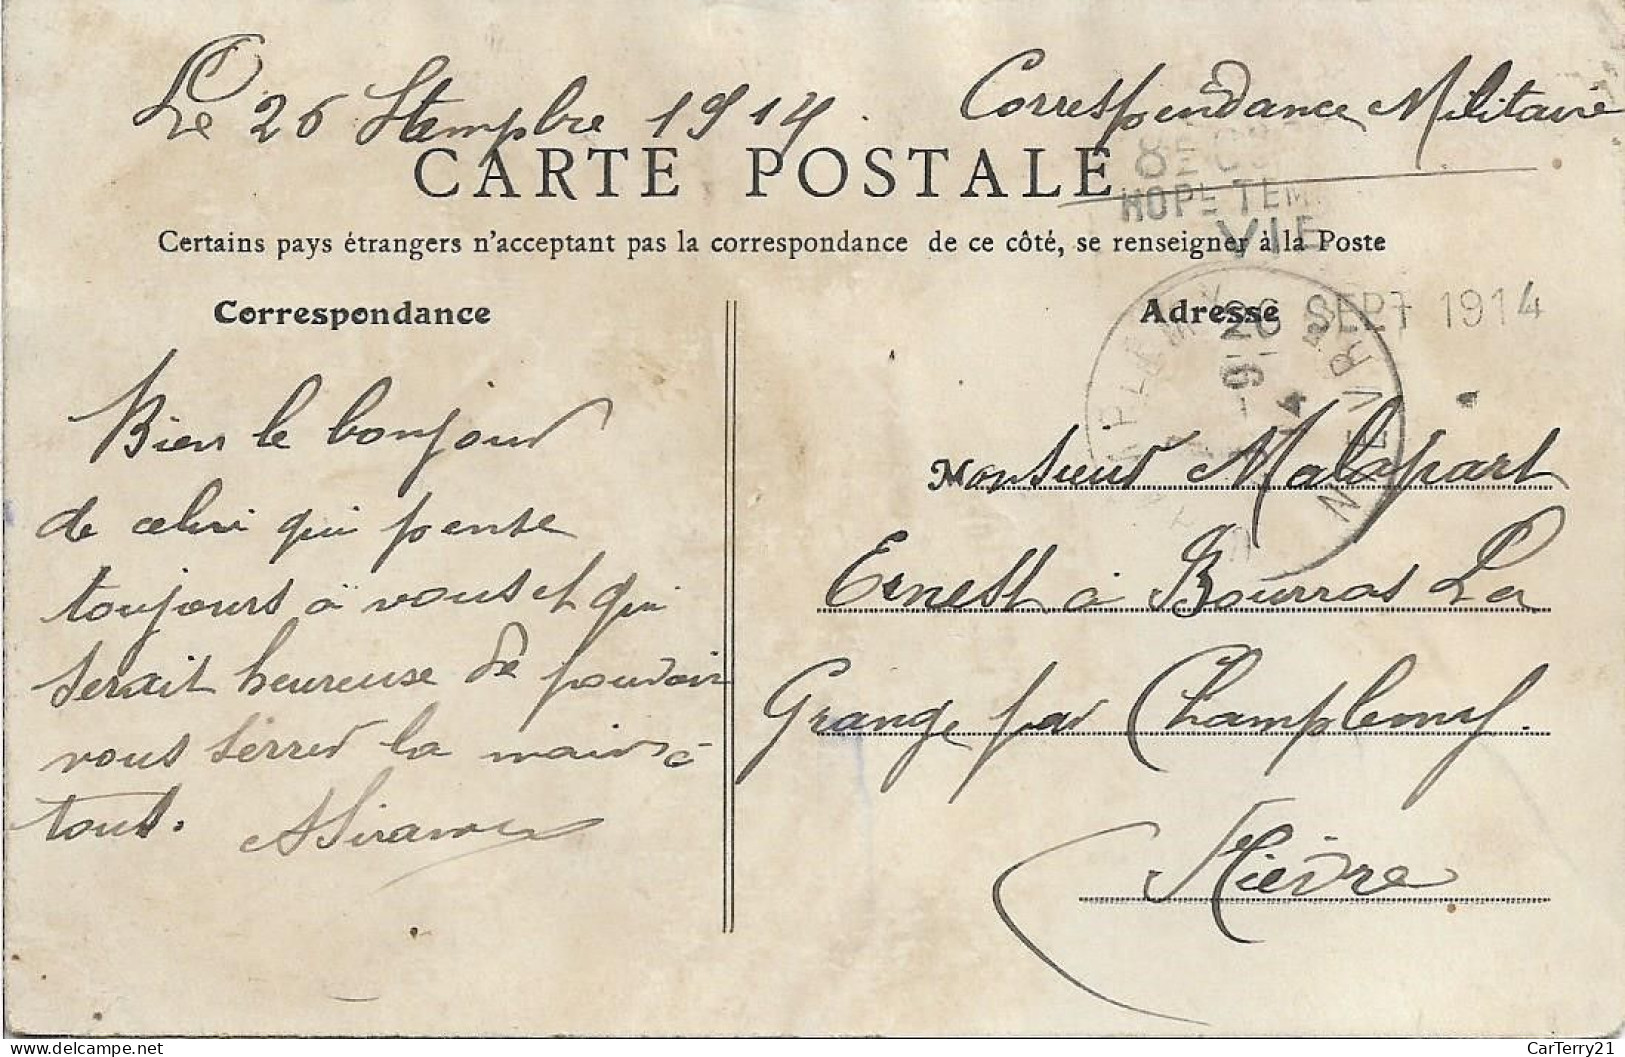 Le 26 Stempbre 1914. Correspondance Militaire
CARTE POSTALE
HOPL TEM
VIE
Certains pays étrangers n'acceptant pas la correspondance de ce côté, se renseigner à la Poste
Correspondance
Adresse
26 SEPT 1914
NIEVRE
Bien le bonjour
de celui qui pense
toujours a vous et qui
serait heureuse de pouvoir
vous serrer la main a
tous.
Monsieur Malapart
Ernest à Bourras La
Grange par Champlemy.
Nièvre
CarTerry21
https://www.delcampe.net